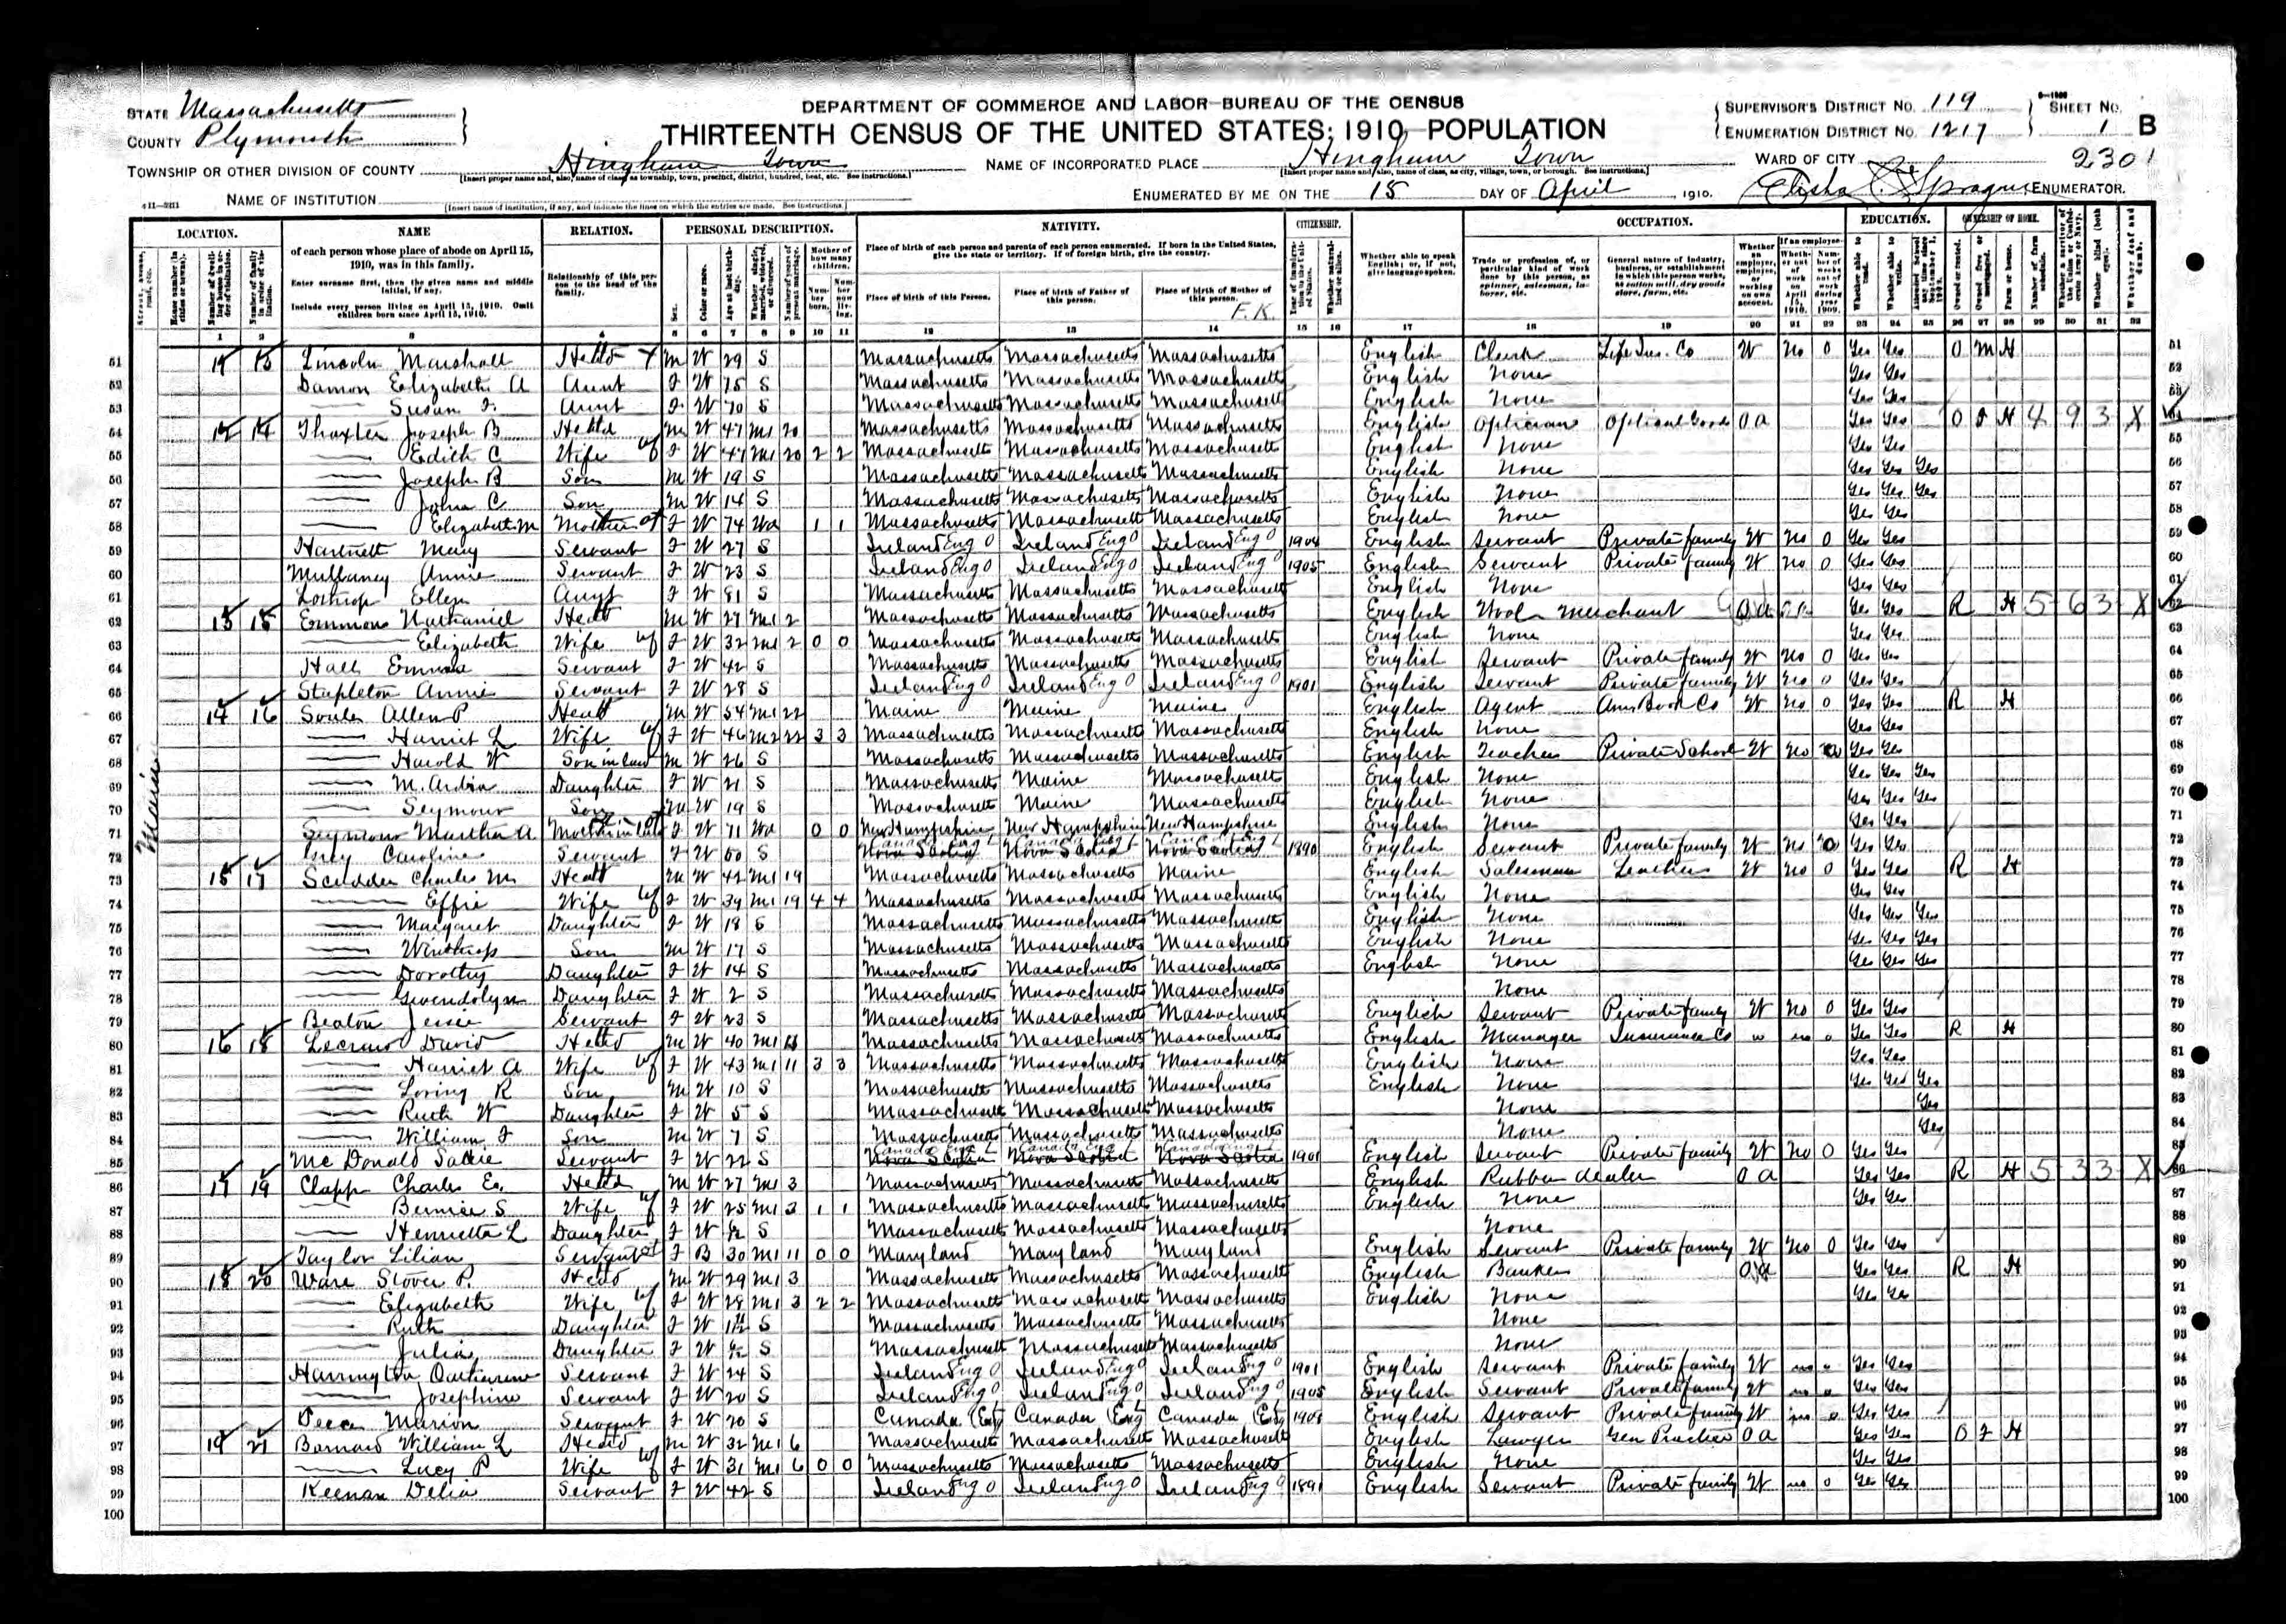 STATE Massachusetts
COUNTY Plymouth
DEPARTMENT OF COMMERCE AND LABOR—BUREAU OF THE CENSUS
THIRTEENTH CENSUS OF THE UNITED STATES: 1910—POPULATION
SUPERVISOR'S DISTRICT NO. 119
ENUMERATION DISTRICT NO. 1217
SHEET NO. 1 B
2301
TOWNSHIP OR OTHER DIVISION OF COUNTY Hingham Town
NAME OF INCORPORATED PLACE Hingham Town
WARD OF CITY
NAME OF INSTITUTION
ENUMERATED BY ME ON THE 15 DAY OF April, 1910. Elisha Sprague ENUMERATOR.
LOCATION. NAME RELATION. PERSONAL DESCRIPTION. NATIVITY. CITIZENSHIP. OCCUPATION. EDUCATION. OWNERSHIP OF HOME.
of each person whose place of abode on April 15, 1910, was in this family.
Enter surname first, then the given name and middle initial, if any.
Include every person living on April 15, 1910. Omit children born since April 15, 1910.
Relationship of this person to the head of the family.
Place of birth of each person and parents of each person enumerated. If born in the United States, give the state or territory. If of foreign birth, give the country.
Place of birth of this Person. Place of birth of Father of this person. Place of birth of Mother of this person.
Whether able to speak English; or, if not, give language spoken.
F. K.
51 Lincoln Marshall Head M W 29 S Massachusetts Massachusetts Massachusetts English Clerk Life Ins. Co W No 0 Yes Yes O M H
52 Damon Elizabeth A Aunt F W 75 S Massachusetts Massachusetts Massachusetts English None Yes Yes
53 —— Susan F. Aunt F W 70 S Massachusetts Massachusetts Massachusetts English None Yes Yes
54 Thaxter Joseph B Head M W 47 M1 20 Massachusetts Massachusetts Massachusetts English Optician Optical Goods O A Yes Yes O F H 4 9 3 X
55 —— Edith C Wife F W 47 M1 20 2 2 Massachusetts Massachusetts Massachusetts English None Yes Yes
56 —— Joseph B Son M W 19 S Massachusetts Massachusetts Massachusetts English None Yes Yes Yes
57 —— John C Son M W 14 S Massachusetts Massachusetts Massachusetts English None Yes Yes Yes
58 —— Elizabeth M Mother F W 74 Wd 1 1 Massachusetts Massachusetts Massachusetts English None Yes Yes
59 Hartnett Mary Servant F W 27 S Ireland Eng O Ireland Eng O Ireland Eng O 1904 English Servant Private family W No 0 Yes Yes
60 Mullaney Annie Servant F W 23 S Ireland Eng O Ireland Eng O Ireland Eng O 1905 English Servant Private family W No 0 Yes Yes
61 Lothrop Ellen Aunt F W 81 S Massachusetts Massachusetts Massachusetts English None Yes Yes
62 13 15 Emmons Nathaniel Head M W 27 M1 2 Massachusetts Massachusetts Massachusetts English Wool Merchant Yes Yes R H 5 6 3 X
63 —— Elizabeth Wife F W 32 M1 2 0 0 Massachusetts Massachusetts Massachusetts English None Yes Yes
64 Hall Emma Servant F W 42 S Massachusetts Massachusetts Massachusetts English Servant Private family W No 0 Yes Yes
65 Stapleton Annie Servant F W 28 S Ireland Eng O Ireland Eng O Ireland Eng O 1901 English Servant Private family W No 0 Yes Yes
66 14 16 Soule Allen P Head M W 54 M1 22 Maine Maine Maine English Agent Am Book Co W No 0 Yes Yes R H
67 —— Harriet L Wife F W 46 M2 22 3 3 Massachusetts Massachusetts Massachusetts English None Yes Yes
68 —— Harold W Son in law M W 26 S Massachusetts Massachusetts Massachusetts English Teacher Private School W No Yes Yes
69 —— M. Daughter F W 21 S Massachusetts Maine Massachusetts English None Yes Yes Yes
70 —— Seymour Son M W 19 S Massachusetts Maine Massachusetts English None Yes Yes Yes
71 Seymour Martha A Mother in law F W 71 Wd 0 0 New Hampshire New Hampshire New Hampshire English None Yes Yes
72 Caroline Servant F W 60 S Nova Scotia Nova Scotia Nova Scotia 1890 English Servant Private family W No 0 Yes Yes
73 15 17 Scudder Charles M Head M W 42 M1 19 Massachusetts Massachusetts Maine English Salesman Leather W No 0 Yes Yes R H
74 —— Effie Wife F W 39 M1 19 4 4 Massachusetts Massachusetts Massachusetts English None Yes Yes
75 —— Margaret Daughter F W 18 S Massachusetts Massachusetts Massachusetts English None Yes Yes Yes
76 —— Winthrop Son M W 17 S Massachusetts Massachusetts Massachusetts English None Yes Yes Yes
77 —— Dorothy Daughter F W 14 S Massachusetts Massachusetts Massachusetts English None Yes Yes Yes
78 —— Gwendolyn Daughter F W 2 S Massachusetts Massachusetts Massachusetts None
79 Beaton Jessie Servant F W 23 S Massachusetts Massachusetts Massachusetts English Servant Private family W No 0 Yes Yes
80 16 18 Lecraw David Head M W 40 M1 11 Massachusetts Massachusetts Massachusetts English Manager Insurance Co W No 0 Yes Yes R H
81 —— Harriet A Wife F W 43 M1 11 3 3 Massachusetts Massachusetts Massachusetts English None Yes Yes
82 —— Loring R Son M W 10 S Massachusetts Massachusetts Massachusetts English None Yes Yes Yes
83 —— Ruth W Daughter F W 5 S Massachusetts Massachusetts Massachusetts None Yes
84 —— William F Son M W 7 S Massachusetts Massachusetts Massachusetts None Yes
85 Mc Donald Sallie Servant F W 22 S Nova Scotia Nova Scotia Nova Scotia 1901 English Servant Private family W No 0 Yes Yes
86 17 19 Clapp Charles E. Head M W 27 M1 3 Massachusetts Massachusetts Massachusetts English Rubber dealer O A Yes Yes R H 5 3 3 X
87 —— Bernice S Wife F W 25 M1 3 1 1 Massachusetts Massachusetts Massachusetts English None Yes Yes
88 —— Henrietta L Daughter F W S Massachusetts Massachusetts Massachusetts None
89 Taylor Lilian Servant F B 30 M1 11 0 0 Maryland Maryland Maryland English Servant Private family W No 0 Yes Yes
90 18 20 Ware Stover P. Head M W 29 M1 3 Massachusetts Massachusetts Massachusetts English Banker O A Yes Yes R H
91 —— Elizabeth Wife F W 28 M1 3 2 2 Massachusetts Massachusetts Massachusetts English None Yes Yes
92 —— Ruth Daughter F W S Massachusetts Massachusetts Massachusetts None
93 —— Julia Daughter F W S Massachusetts Massachusetts Massachusetts None
94 Harrington Servant F W 24 S Ireland Eng O Ireland Eng O Ireland Eng O 1901 English Servant Private family W No 0 Yes Yes
95 —— Josephine Servant F W 20 S Ireland Eng O Ireland Eng O Ireland Eng O 1905 English Servant Private family W No 0 Yes Yes
96 Marion Servant F W 20 S Canada (Eng Canada (Eng Canada (Eng English Servant Private family W No 0 Yes Yes
97 19 21 Barnard William L Head M W 32 M1 6 Massachusetts Massachusetts Massachusetts English Lawyer Gen Practice O A Yes Yes O F H
98 —— Lucy P Wife F W 31 M1 6 0 0 Massachusetts Massachusetts Massachusetts English None Yes Yes
99 Keenan Delia Servant F W 42 S Ireland Eng O Ireland Eng O Ireland Eng O 1891 English Servant Private family W No 0 Yes Yes
100